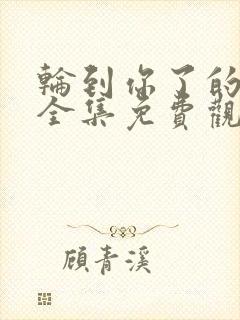 輪到你了的
全集免費觀
顧青溪